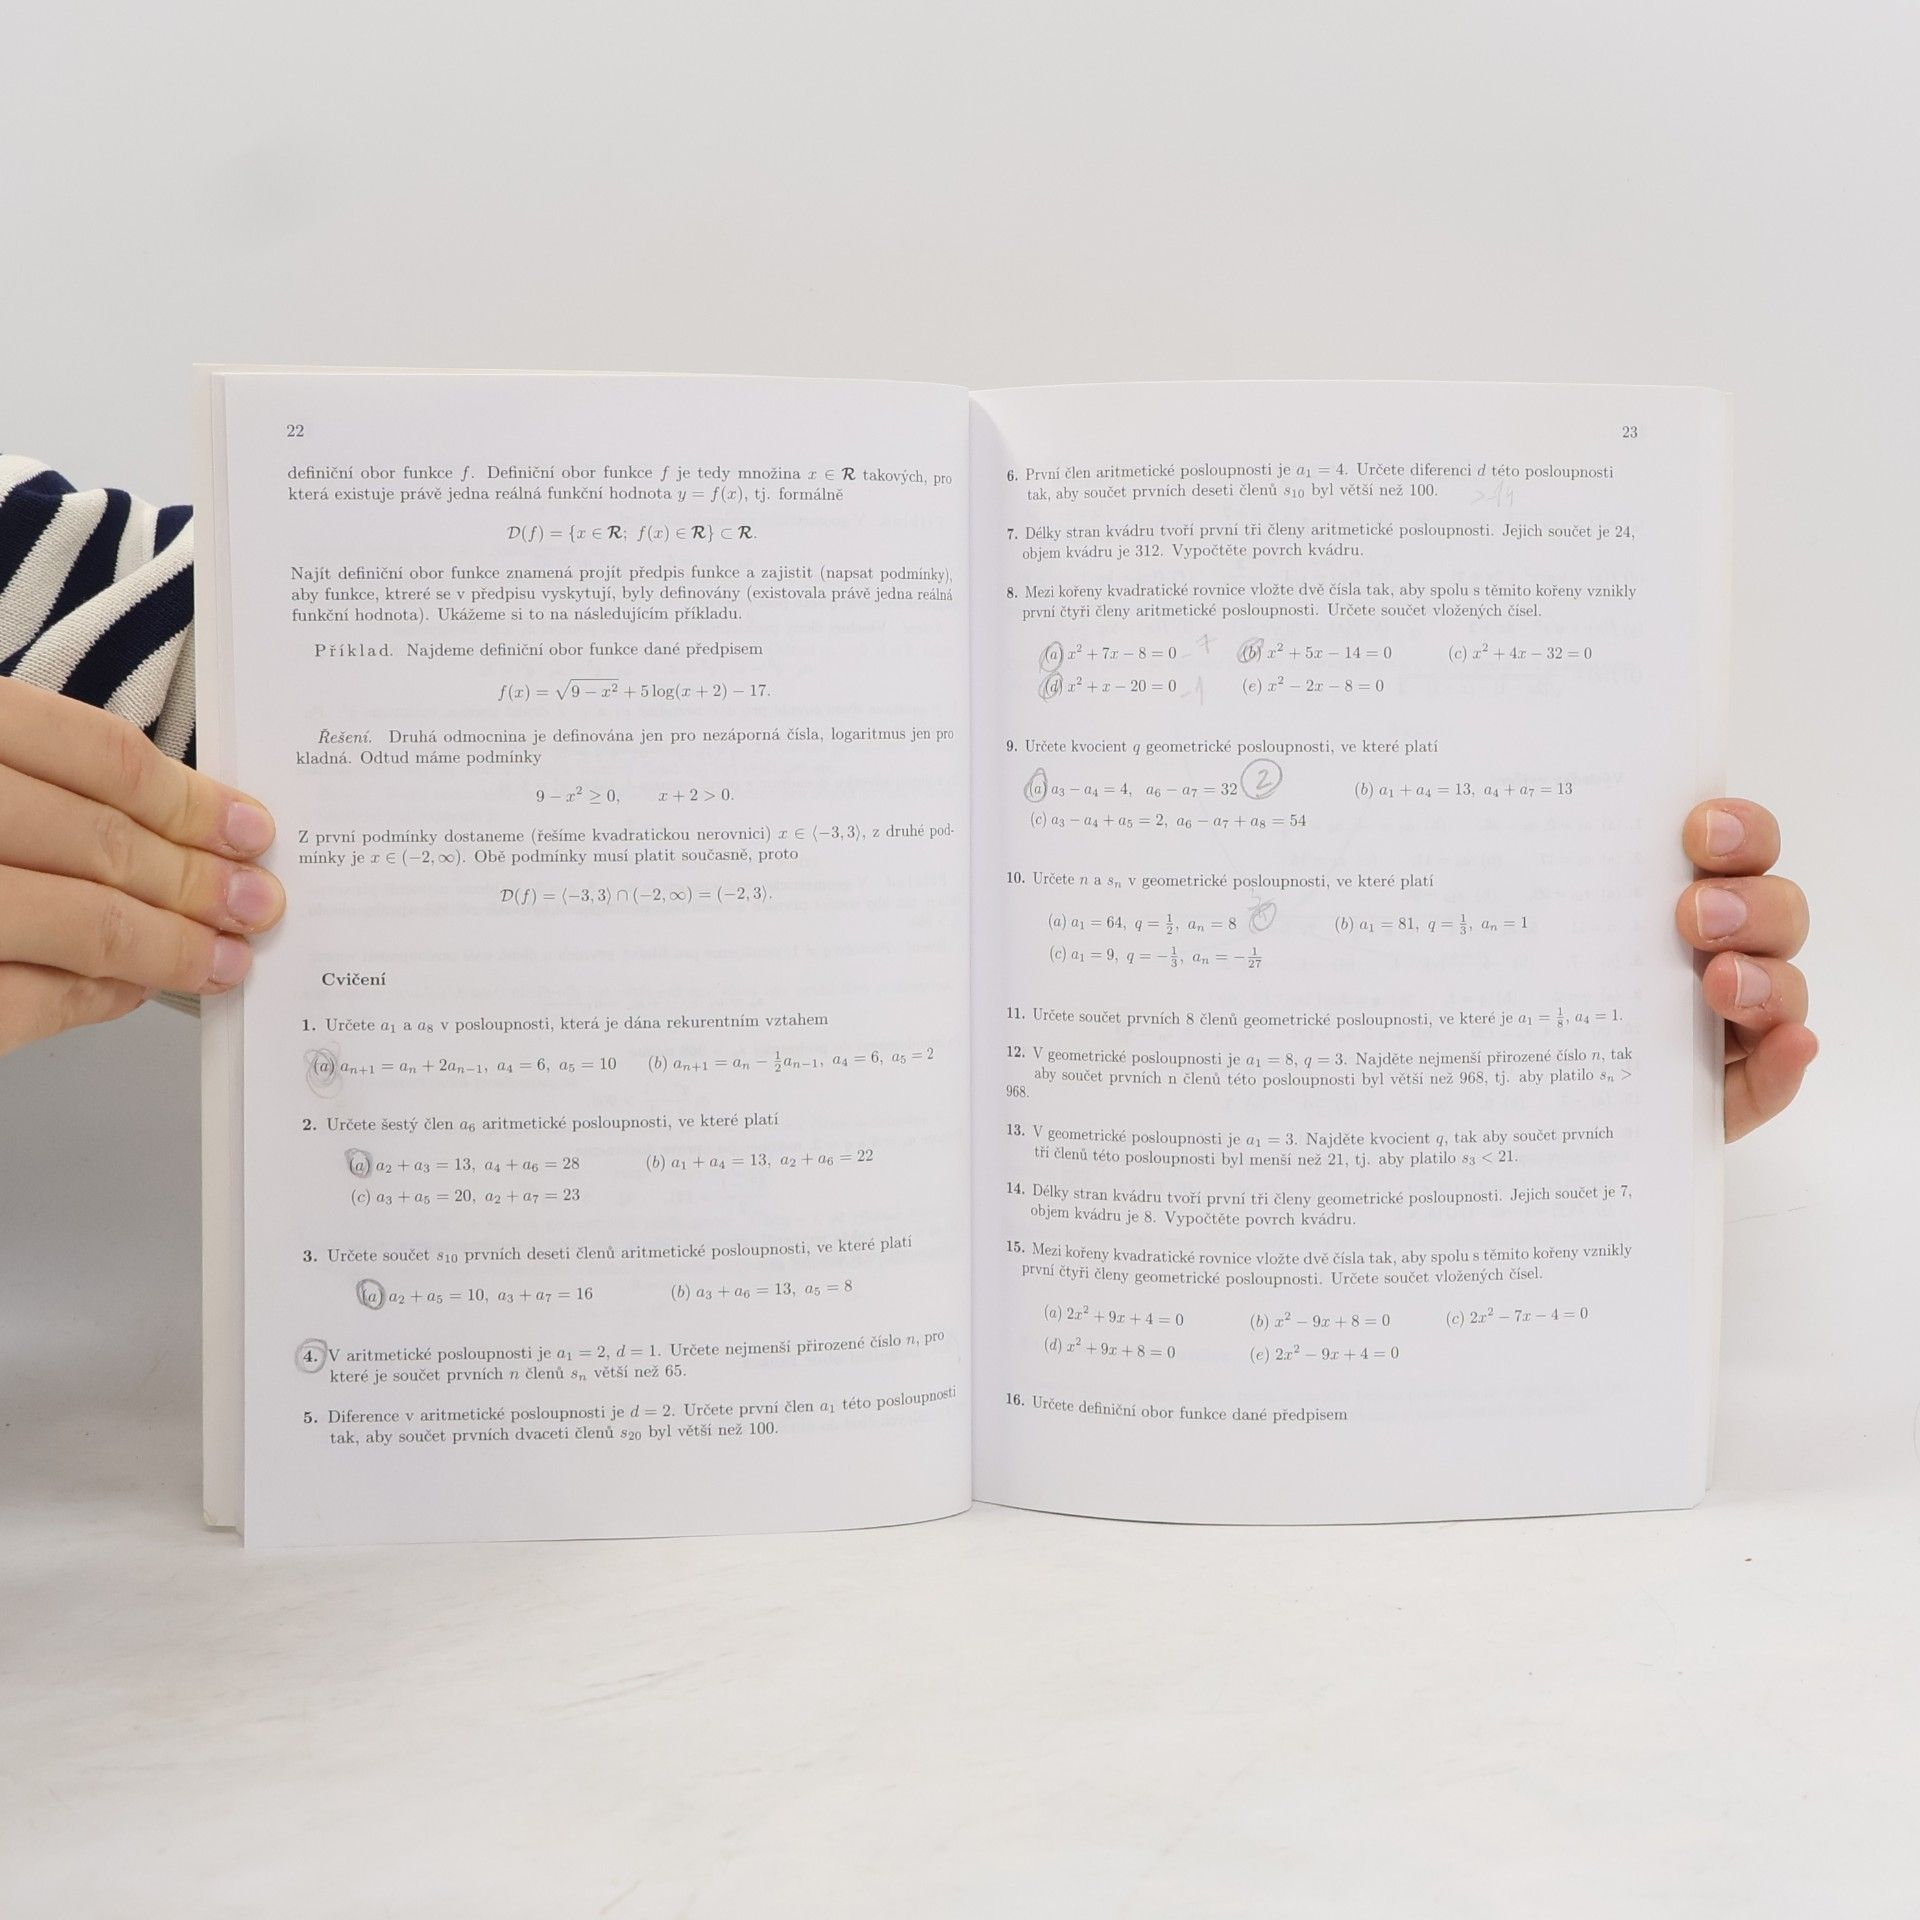 22
definiční obor funkce f. Definiční obor funkce f je tedy množina x ∈ R takových, pro
která existuje právě jedna reálná funkční hodnota y = f(x), tj. formálně
D(f) = {x ∈ R; f(x) ∈ R} ⊂ R.
Najít definiční obor funkce znamená projít předpis funkce a zajistit (napsat podmínky),
aby funkce, ktreré se v předpisu vyskytují, byly definovány (existovala právě jedna reálná
funkční hodnota). Ukážeme si to na následujícím příkladu.
Příklad. Najdeme definiční obor funkce dané předpisem
f(x) = √(9 − x²) + 5 log(x + 2) − 17.
Řešení. Druhá odmocnina je definována jen pro nezáporná čísla, logaritmus jen pro
kladná. Odtud máme podmínky
9 − x² ≥ 0, x + 2 > 0.
Z první podmínky dostaneme (řešíme kvadratickou nerovnici) x ∈ ⟨−3, 3⟩, z druhé pod-
mínky je x ∈ (−2, ∞). Obě podmínky musí platit současně, proto
D(f) = ⟨−3, 3⟩ ∩ (−2, ∞) = (−2, 3⟩.
Cvičení
1. Určete a₁ a a₈ v posloupnosti, která je dána rekurentním vztahem
(a) aₙ₊₁ = aₙ + 2aₙ₋₁, a₄ = 6, a₅ = 10 (b) aₙ₊₁ = aₙ − ½aₙ₋₁, a₄ = 6, a₅ = 2
2. Určete šestý člen a₆ aritmetické posloupnosti, ve které platí
(a) a₂ + a₃ = 13, a₄ + a₆ = 28 (b) a₁ + a₄ = 13, a₂ + a₆ = 22
(c) a₃ + a₅ = 20, a₂ + a₇ = 23
3. Určete součet s₁₀ prvních deseti členů aritmetické posloupnosti, ve které platí
(a) a₂ + a₅ = 10, a₃ + a₇ = 16 (b) a₃ + a₆ = 13, a₅ = 8
4. V aritmetické posloupnosti je a₁ = 2, d = 1. Určete nejmenší přirozené číslo n, pro
které je součet prvních n členů sₙ větší než 65.
5. Diference v aritmetické posloupnosti je d = 2. Určete první člen a₁ této posloupnosti
tak, aby součet prvních dvaceti členů s₂₀ byl větší než 100.
23
6. První člen aritmetické posloupnosti je a₁ = 4. Určete diferenci d této posloupnosti
tak, aby součet prvních deseti členů s₁₀ byl větší než 100.
7. Délky stran kvádru tvoří první tři členy aritmetické posloupnosti. Jejich součet je 24,
objem kvádru je 312. Vypočtěte povrch kvádru.
8. Mezi kořeny kvadratické rovnice vložte dvě čísla tak, aby spolu s těmito kořeny vznikly
první čtyři členy aritmetické posloupnosti. Určete součet vložených čísel.
(a) x² + 7x − 8 = 0 −7 (b) x² + 5x − 14 = 0 (c) x² + 4x − 32 = 0
(d) x² + x − 20 = 0 −1 (e) x² − 2x − 8 = 0
9. Určete kvocient q geometrické posloupnosti, ve které platí
(a) a₃ − a₄ = 4, a₆ − a₇ = 32 2 (b) a₁ + a₄ = 13, a₄ + a₇ = 13
(c) a₃ − a₄ + a₅ = 2, a₆ − a₇ + a₈ = 54
10. Určete n a sₙ v geometrické posloupnosti, ve které platí
(a) a₁ = 64, q = ½, aₙ = 8 (b) a₁ = 81, q = ⅓, aₙ = 1
(c) a₁ = 9, q = −⅓, aₙ = −1/27
11. Určete součet prvních 8 členů geometrické posloupnosti, ve které je a₁ = ⅛, a₄ = 1.
12. V geometrické posloupnosti je a₁ = 8, q = 3. Najděte nejmenší přirozené číslo n, tak
aby součet prvních n členů této posloupnosti byl větší než 968, tj. aby platilo sₙ >
968.
13. V geometrické posloupnosti je a₁ = 3. Najděte kvocient q, tak aby součet prvních
tří členů této posloupnosti byl menší než 21, tj. aby platilo s₃ < 21.
14. Délky stran kvádru tvoří první tři členy geometrické posloupnosti. Jejich součet je 7,
objem kvádru je 8. Vypočtěte povrch kvádru.
15. Mezi kořeny kvadratické rovnice vložte dvě čísla tak, aby spolu s těmito kořeny vznikly
první čtyři členy geometrické posloupnosti. Určete součet vložených čísel.
(a) 2x² + 9x + 4 = 0 (b) x² − 9x + 8 = 0 (c) 2x² − 7x − 4 = 0
(d) x² + 9x + 8 = 0 (e) 2x² − 9x + 4 = 0
16. Určete definiční obor funkce dané předpisem